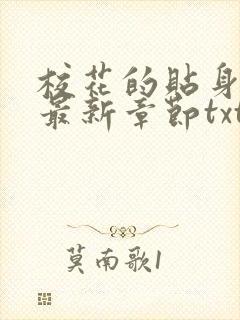 校花的貼身
最新章節txt
莫南歌1